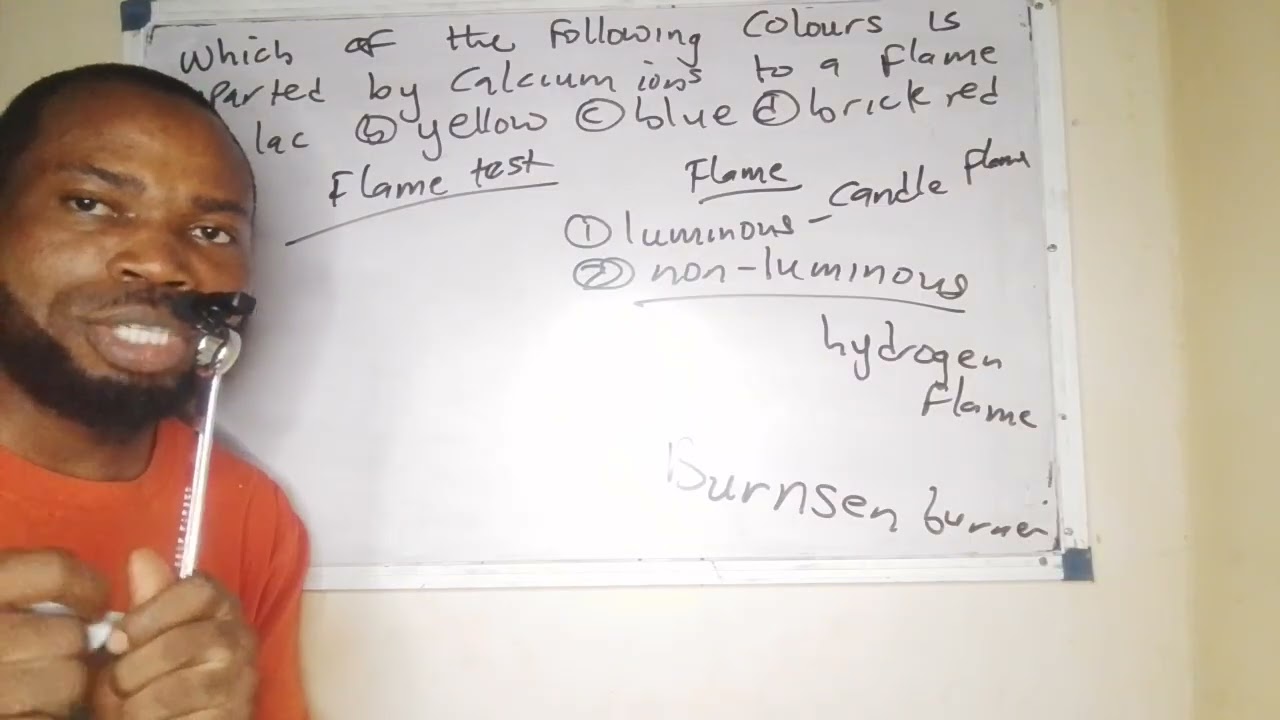 which of the Following Colours is
parted by Calcium ions to a Flame
lac (b) yellow (c) blue (d) brick red
Flame test
Flame
(1) luminous - candle Flame
(2) non-luminous
hydrogen
Flame
Burnsen burner